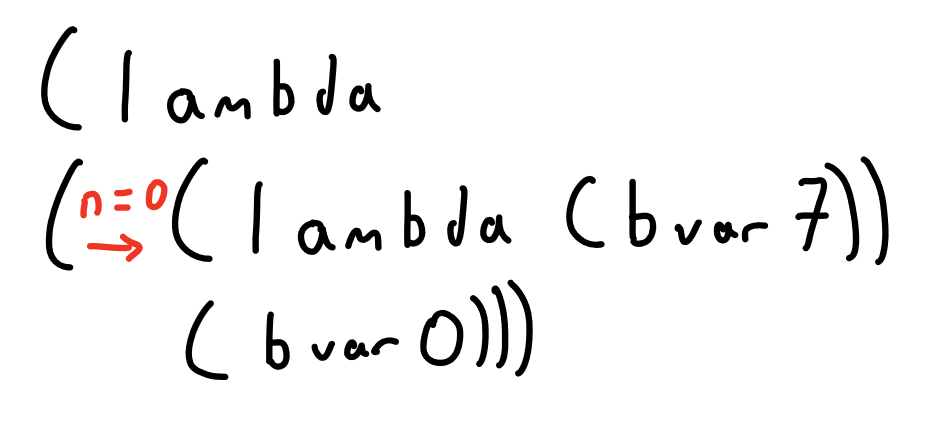 (lambda
(n=0→(lambda (bvar 7))
(bvar 0)))